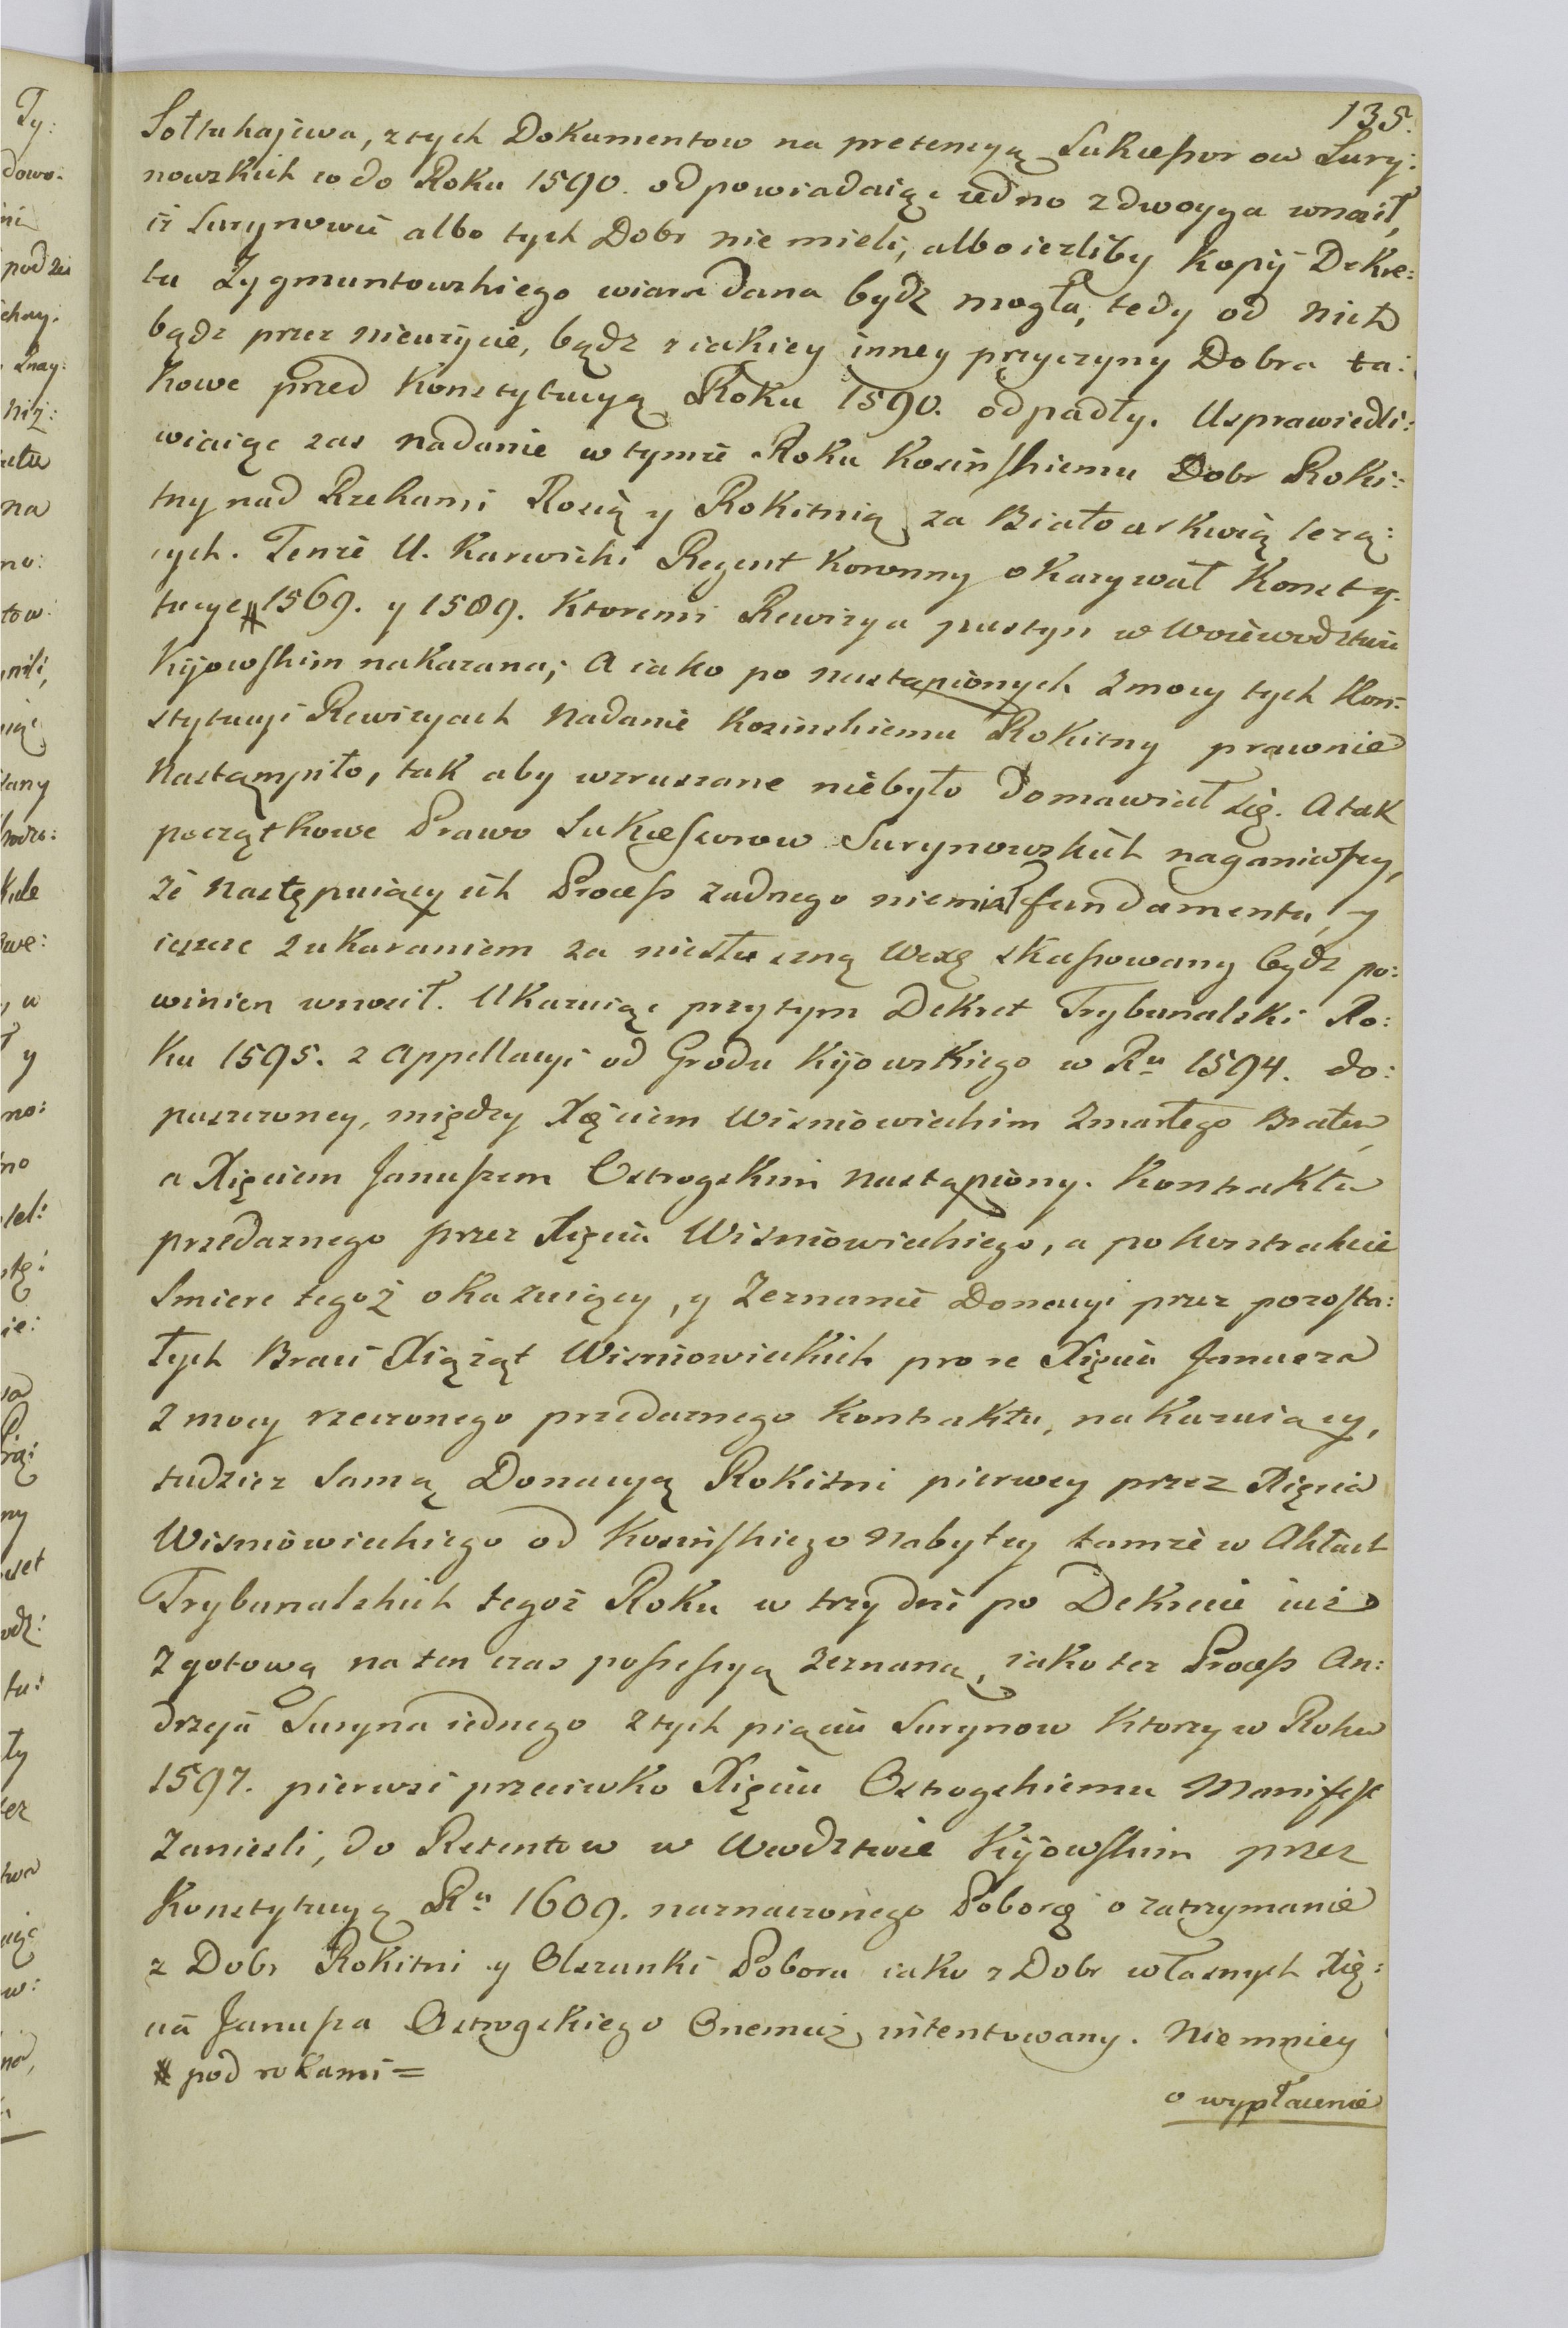 135.
Sołtuhajewa, z tych Dokumentow na pretensyą Sukceßorow Sury:
nowskich co do Roku 1590. odpowiadaiąc iedno z dwoyga wnosił,
iż Surynowie albo tych Dobr nie mieli, albo ieżliby Kopij Dekre:
tu Zygmuntowskiego wiara dana bydz mogła, tedy od nich
bądz przez nieużycie, bądz z iakiey inney przyczyny Dobra ta:
kowe przed Konstytucyą Roku 1590. odpadły. Usprawiedli:
wiaiąc zas nadanie w tymże Roku Kosińskiemu Dobr Roki:
tny nad Rzekami Rosią y Rokitnią za Białocerkwią leżą:
cych. Tenże U. Karwicki Regent Koronny okazywał Konsty:
tucye # 1569. y 1589. Ktoremi Rewizya pustyń w Woiewodztwie
Kijowskim nakazana; A iako po nastąpionych z mocy tych Kon:
stytucyi Rewizyach Nadanie Kosinskiemu Rokitny prawnie
Nastąmpiło, tak aby wzruszane niebyło domawiał się. A tak
początkowe Prawo Sukceßorow Surynowskich naganiwszy,
że następuiący ich Proceß żadnego niemiał fundamentu, y
ieszcze z ukaraniem za niesłuszną Wexę skaßowany bydz po:
winien wnosił. Ukazuiąc przytym Dekret Trybunalski Ro:
ku 1595. z Appellacyi od Grodu Kijowskiego w Ru 1594. do:
puszczoney, między Xięciem Wisniowieckim zmarłego Bratem,
a Xięciem Janußem Ostrogskim nastąpiony. Kontraktu
przedaznego przez Xięcia Wisniowieckiego, a po kontrakcie
Smierc tegoż okazuiący, y Zeznanie Donacyi przez pozosta:
łych Braci Xiążąt Wisniowieckich pro re Xięcia Janusza
z mocy rzeczonego przedaznego Kontraktu, nakazuiący,
tudziez Samą Donacyą Rokitni pierwey przez Xięcia
Wisniowieckiego od Kosińskiego Nabytey tamże w Aktach
Trybunalskich tegoż Roku w trzy dni po Dekrecie iuż
z gotową na ten czas poßeßyą zeznaną, iako tez Proceß An:
drzeja Suryna iednego z tych pięciu Surynow Ktorzy w Roku
1597. pierwsi przeciwko Xięciu Ostrogskiemu Manifest
Zaniesli, do Retentow w Wwodztwie Kijowskim przez
Konstytucyą Ru 1609. naznaczonego Poborcę o zatrzymanie
z Dobr Rokitni y Olszanki Poboru iako z Dobr własnych Xię:
cia Janußa Ostrogskiego Onemuż intentowany. Niemniey
# pod rokami =
o wypłacenie